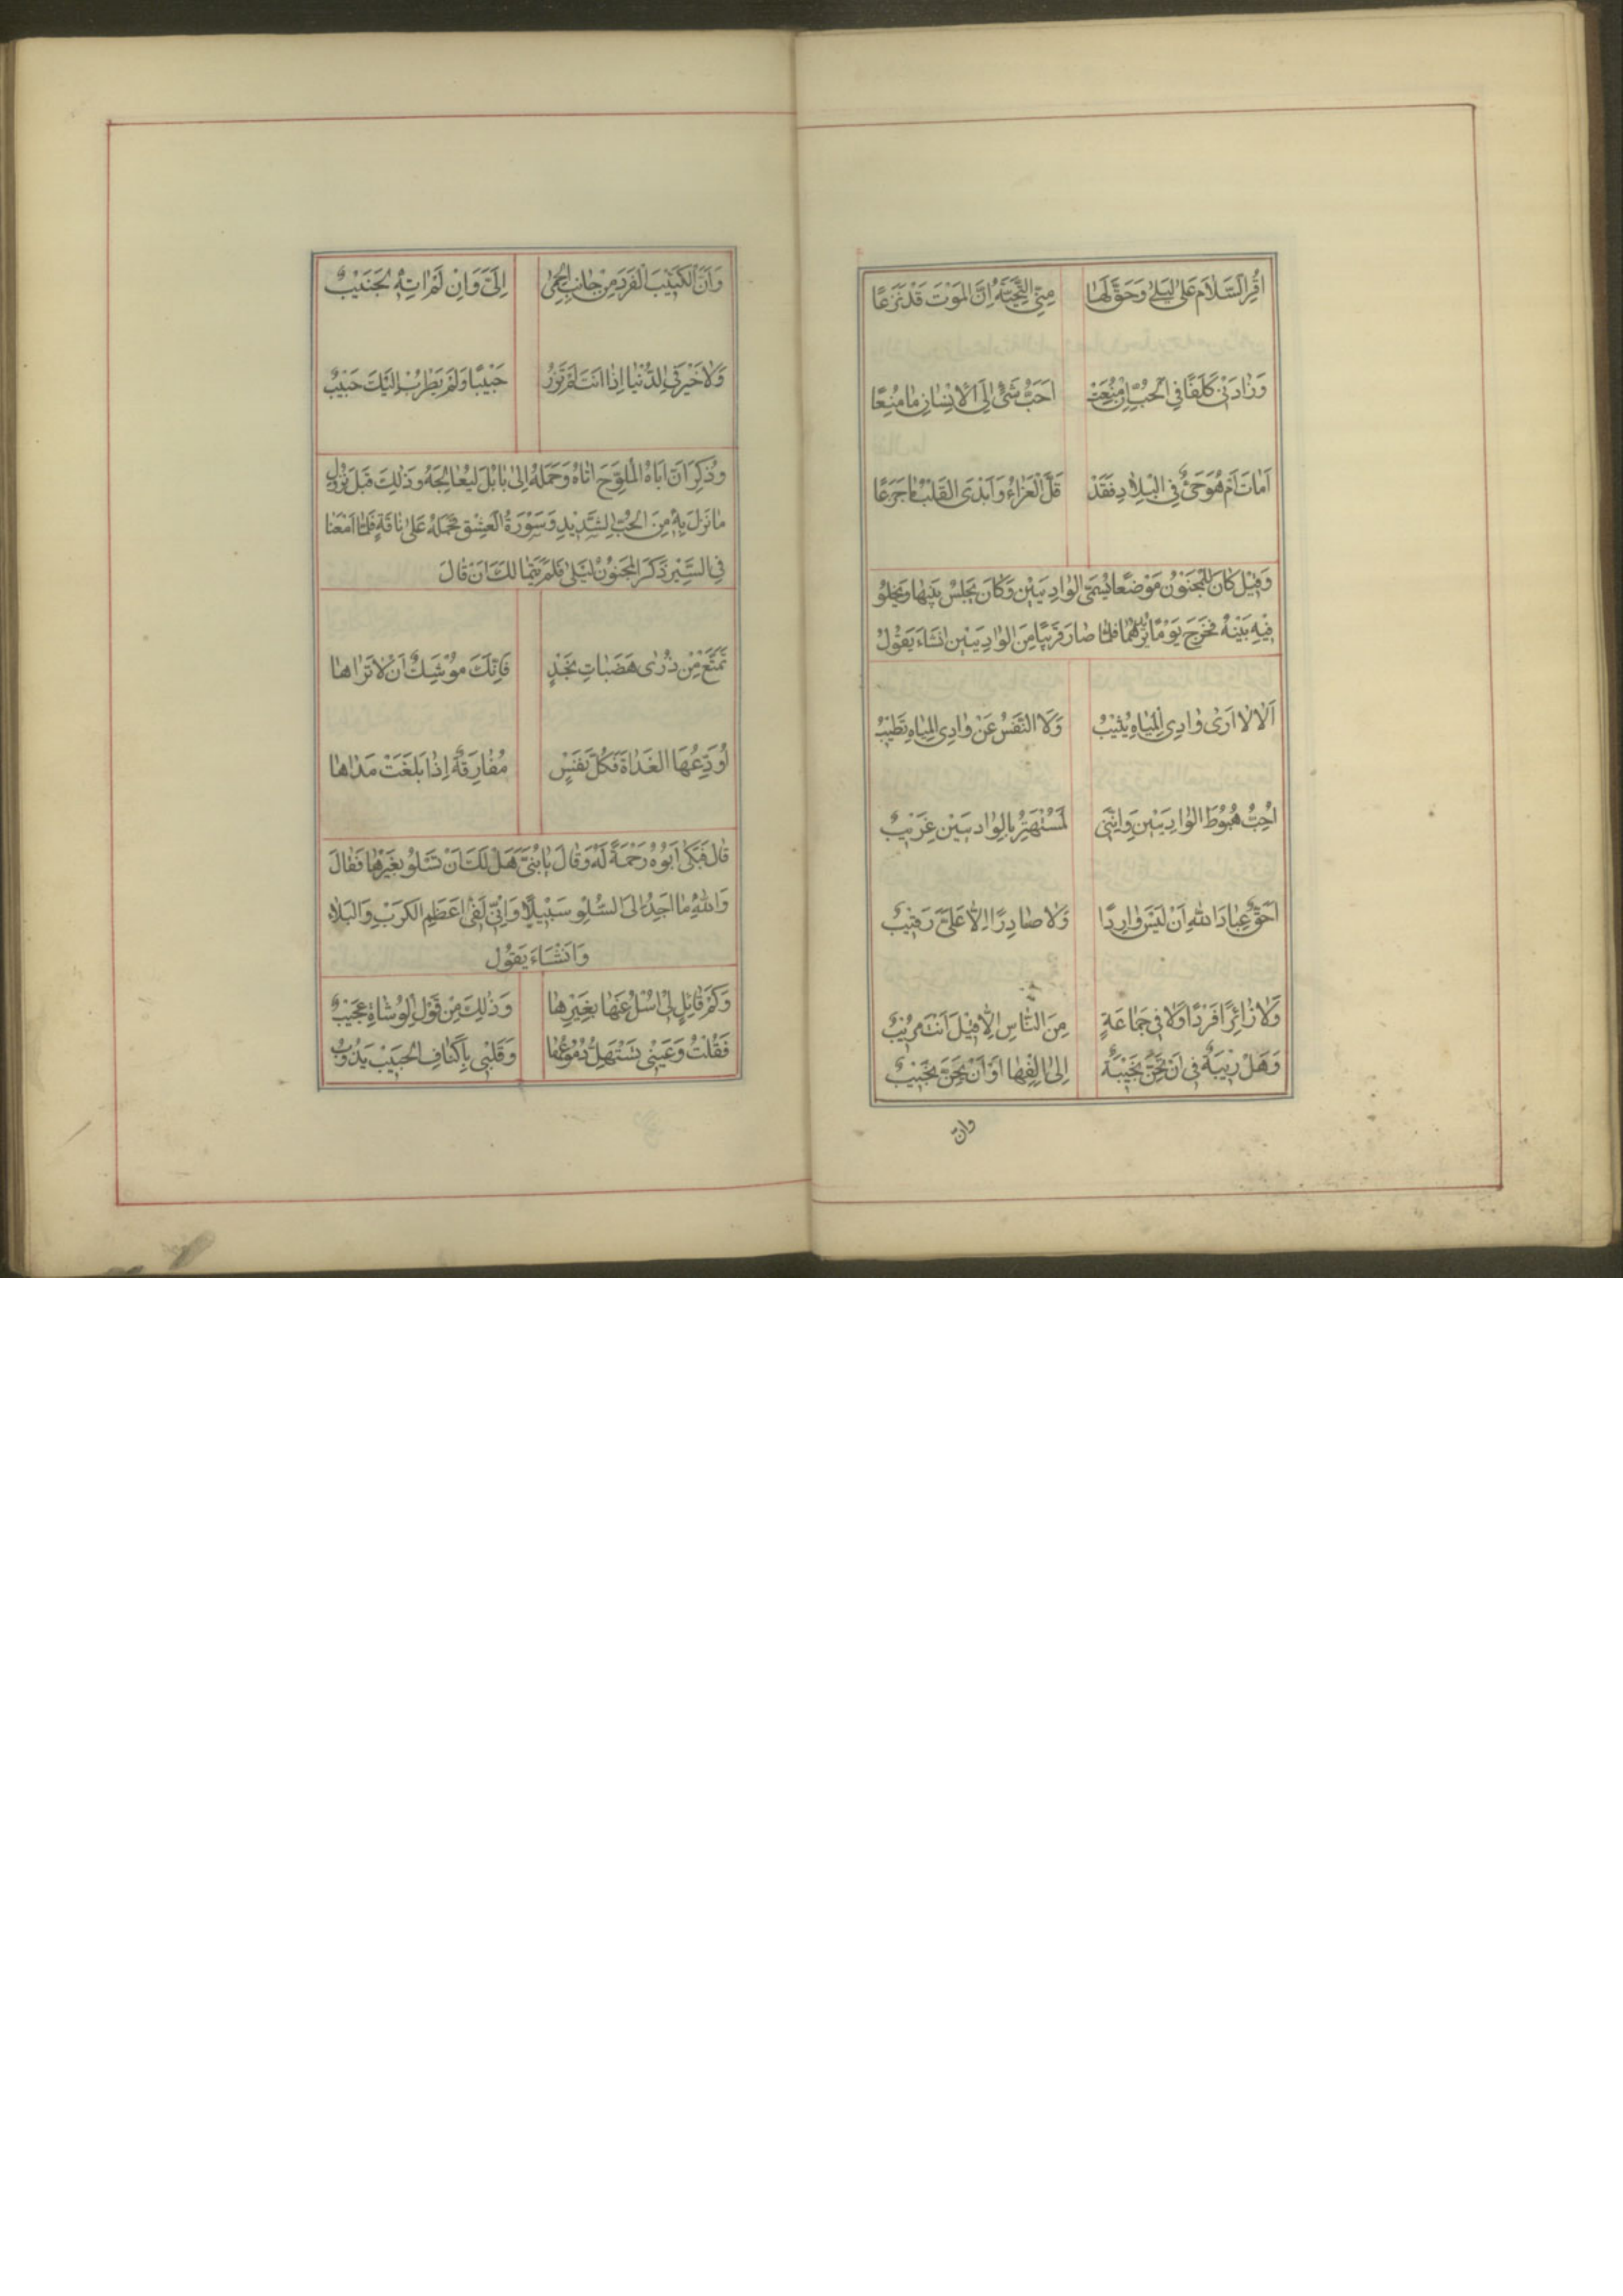 اَقْرِ السَّلَامَ عَلَىٰ لَيْلَىٰ وَحَقَّ لَهَا مِنِّي التَّحِيَّةُ اِنَّ الْمَوْتَ قَدْ نَزَعًا
وَزَادَنِي كَلَفًا فِي الْحُبِّ اِنْ مُنِعَتْ اَحَبُّ شَيْءٍ اِلَى الْاِنْسَانِ مَا مُنِعًا
اَمَاتَ اَمْ هُوَ حَيٌّ فِي الْبِلَادِ فَقَدْ قَلَّ الْعَزَاءُ وَاَبْدَى الْقَلْبُ مَا جَرَعًا
وَقِيْلَ كَانَ لِلْمَجْنُوْنِ مَوْضِعًا يُسَمَّى الوَادِيَيْنِ وَكَانَ يَجْلِسُ بَيْنَهَا وَيَخْلُوْ
فِيْهِ بَيْنَهُ فَخَرَجَ يَوْمًا فَلَمَّا صَارَ قَرِيْبًا مِنَ الوَادِيَيْنِ اَنْشَاءَ يَقُوْلُ
اَلَا لَا اَرٰى وَادِي الْمِيَاهِ يُثِيْبُ وَلَا النَّفْسُ عَنْ وَادِي الْمِيَاهِ تَطِيْبُ
اُحِبُّ هُبُوْطَ الوَادِيَيْنِ وَاِنَّنِي لَمُسْتَهْتِرٌ بِالوَادِيَيْنِ غَرِيْبٌ
اَحَقٌّ عِبَادَ اللهِ اَنْ لَيْسَ وَارِدًا وَلَا صَادِرًا اِلَّا عَلَيَّ رَقِيْبٌ
وَلَا زَائِرًا فَرْدًا وَلَا فِي جَمَاعَةٍ مِنَ النَّاسِ اِلَّا قِيْلَ اَنْتَ مُرِيْبٌ
وَهَلْ رِيْبَةٌ فِي اَنْ تَحِنَّ نَجِيْبَةٌ اِلىٰ اِلْفِهَا اَوْ اَنْ يَحِنَّ نَجِيْبٌ
وانّ
وَاَنَّ الْكَثِيْبَ الْفَرْدَ مِنْ جَانِبِ الْحِمٰى اِلَيَّ وَاِنْ لَمْ اٰتِهِ لَجَنِيْبٌ
وَلَا خَيْرَ فِي الدُّنْيَا اِذَا اَنْتَ لَمْ تَزُرْ حَبِيْبًا وَلَمْ يَطْرَبْ اِلَيْكَ حَبِيْبٌ
وَذُكِرَ اَنَّ اَبَاهُ الْمُلَوَّحَ اَتَاهُ وَحَمَلَهُ اِلىٰ بَابِلَ لِيُعَالِجَهُ وَذٰلِكَ قَبْلَ نُزُوْلِ
مَا نَزَلَ بِهِ مِنَ الْحُبِّ الشَّدِيْدِ وَسَوْرَةِ الْعِشْقِ فَحَمَلَهُ عَلىٰ نَاقَةٍ فَلَمَّا اَمْعَنَا
فِي السَّيْرِ ذَكَرَ الْمَجْنُوْنُ لَيْلىٰ فَلَمْ يَتَمَالَكْ اَنْ قَالَ
تَمَتَّعْ مِنْ ذُرٰى هَضَبَاتِ نَجْدٍ فَاِنَّكَ مُوْشِكٌ اَنْ لَا تَرَاهَا
اُوَدِّعُهَا الْغَدَاةَ فَكُلُّ نَفْسٍ مُفَارِقَةٌ اِذَا بَلَغَتْ مَدَاهَا
قَالَ فَبَكىٰ اَبُوْهُ رَحْمَةً لَهُ وَقَالَ يَا بُنَيَّ هَلْ لَكَ اَنْ تَسْلُوَ بِغَيْرِهَا فَقَالَ
وَاللهِ مَا اَجِدُ اِلَى السُّلُوِّ سَبِيْلًا وَاِنِّي لَفِي اَعْظَمِ الْكَرْبِ وَالْبَلَاءِ
وَاَنْشَاءَ يَقُوْلُ
وَكَمْ قَائِلٍ لِي اسْلُ عَنْهَا بِغَيْرِهَا وَذٰلِكَ مِنْ قَوْلِ الْوُشَاةِ عَجِيْبٌ
فَقُلْتُ وَعَيْنِي تَسْتَهِلُّ دُمُوْعُهَا وَقَلْبِي بِاَكْنَافِ الْحَبِيْبِ يَذُوْبُ